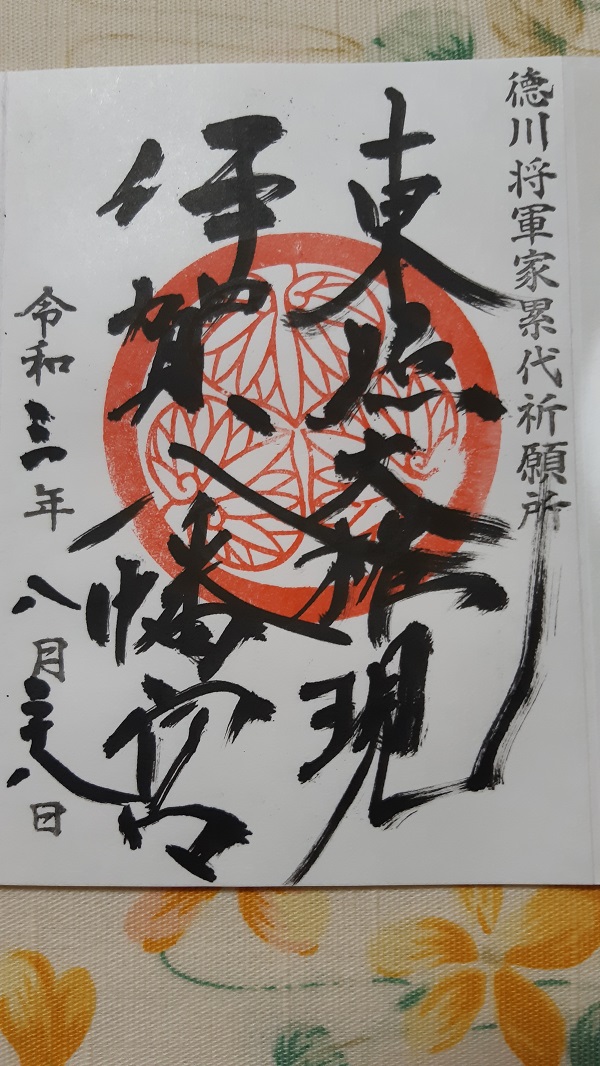 徳川将軍家累代祈願所
東照大権現
伊賀八幡宮
令和三年八月二十八日